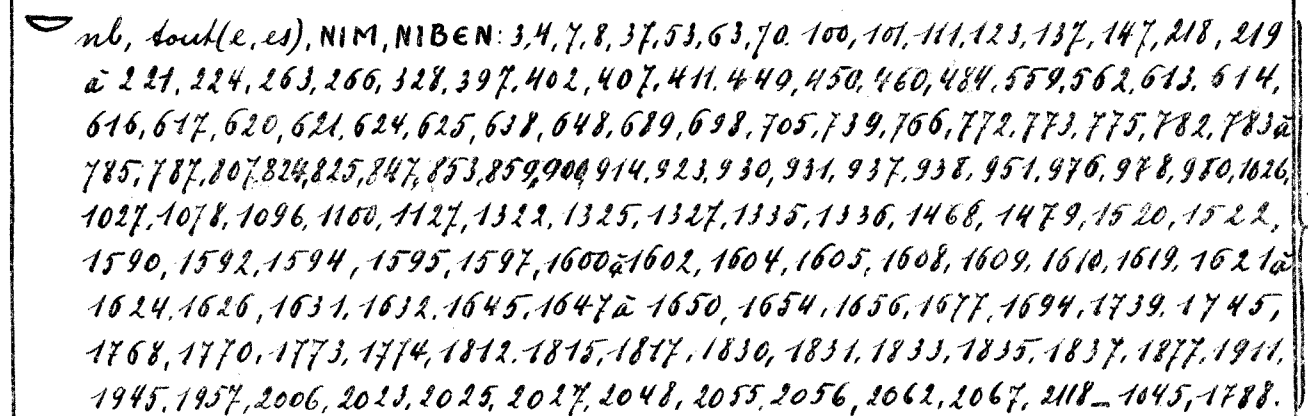 𓎟 nb, tout(e, es), NIM, NIBEN: 3, 4, 7, 8, 37, 53, 63, 70. 100, 101, 111, 123, 137, 147, 218, 219
à 221, 224, 263, 266, 328, 397, 402, 407, 411. 449, 450, 460, 484, 559, 562, 613, 614,
616, 617, 620, 621, 624, 625, 638, 648, 689, 698, 705, 739, 766, 772, 773, 775, 782, 783 à
785, 787, 807, 824, 825, 847, 853, 859, 900, 914, 923, 930, 931, 937, 938, 951, 976, 978, 980, 1026,
1027, 1078, 1096, 1100, 1127, 1322, 1325, 1327, 1335, 1336, 1468, 1479, 1520, 1522,
1590, 1592, 1594, 1595, 1597, 1600 à 1602, 1604, 1605, 1608, 1609, 1610, 1619, 1621 à
1624, 1626, 1631, 1632, 1645, 1647 à 1650, 1654, 1656, 1677, 1694, 1739, 1745,
1768, 1770, 1773, 1774, 1812, 1815, 1817, 1830, 1831, 1833, 1835, 1837, 1877, 1911,
1945, 1957, 2006, 2023, 2025, 2027, 2048, 2055, 2056, 2062, 2067, 2118 _ 1045, 1788.